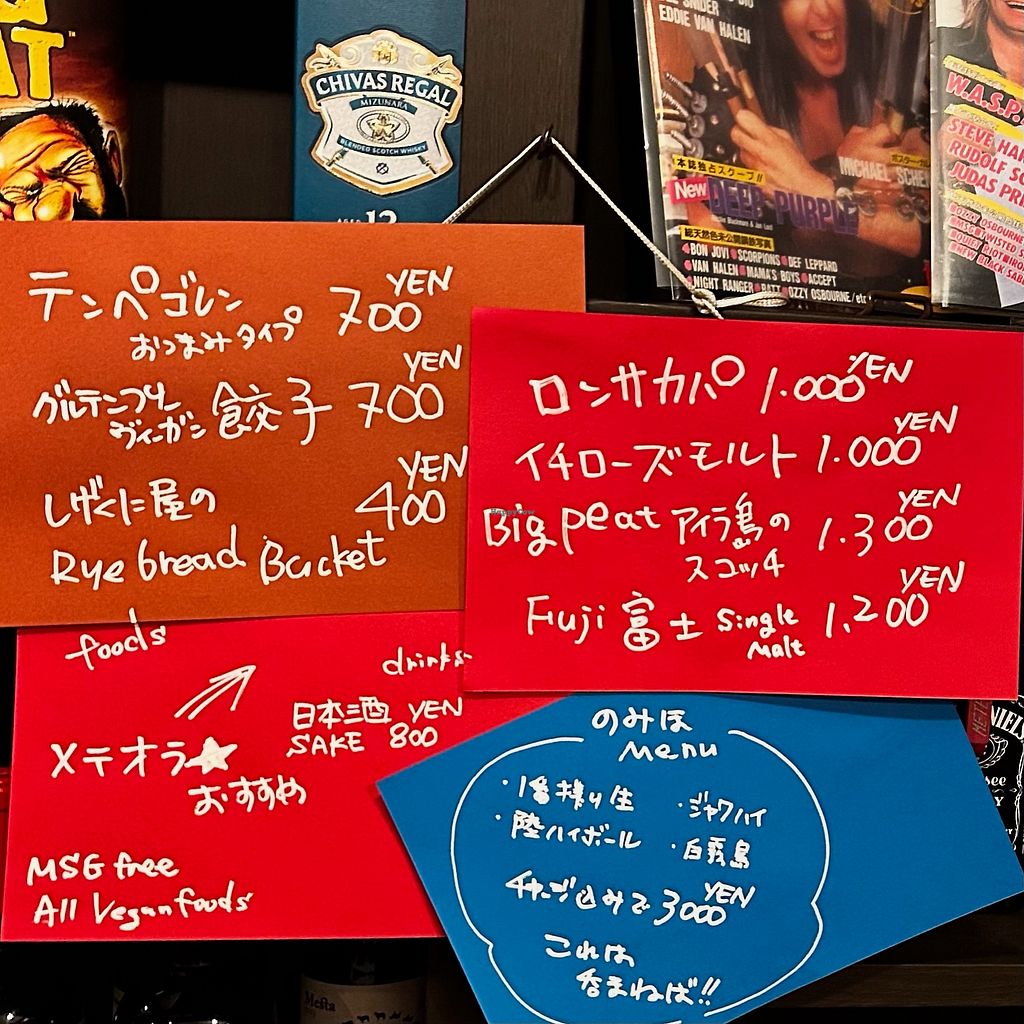 AT
CHIVAS REGAL
MIZUNARA
BLENDED SCOTCH WHISKY
AGED 12
EDDIE VAN HALEN
本誌独占スクープ!!
New DEEP PURPLE
MICHAEL SCHEN
総天然色未公開最新写真
BON JOVI SCORPIONS DEF LEPPARD
VAN HALEN MAMA'S BOYS ACCEPT
NIGHT RANGER RATT OZZY OSBOURNE/etc
W.A.S.P.
STEVE HAR
RUDOLF SC
JUDAS PRI
OZZY OSBOURNE
MSG TWISTED S
QUIET RIOT IRO
NEW BLACK SABB
テンペゴレン 700 YEN
おつまみタイプ
グルテンフリー
ヴィーガン 餃子 700 YEN
しげくに屋の 400 YEN
Rye bread Bucket
ロンサカパ 1.000 YEN
イチローズモルト 1.000 YEN
Big peat アイラ島の 1.300 YEN
スコッチ
Fuji 富士 Single 1,200 YEN
Malt
foods
drinks
日本酒 YEN
SAKE 800
メテオラ★
おすすめ
MSG free
All Vegan foods
のみほ
Menu
・1番搾り生 ・ジャワハイ
・陸ハイボール ・白霧島
チャージ込みで 3000 YEN
これは
呑まねば!!
HappyCow